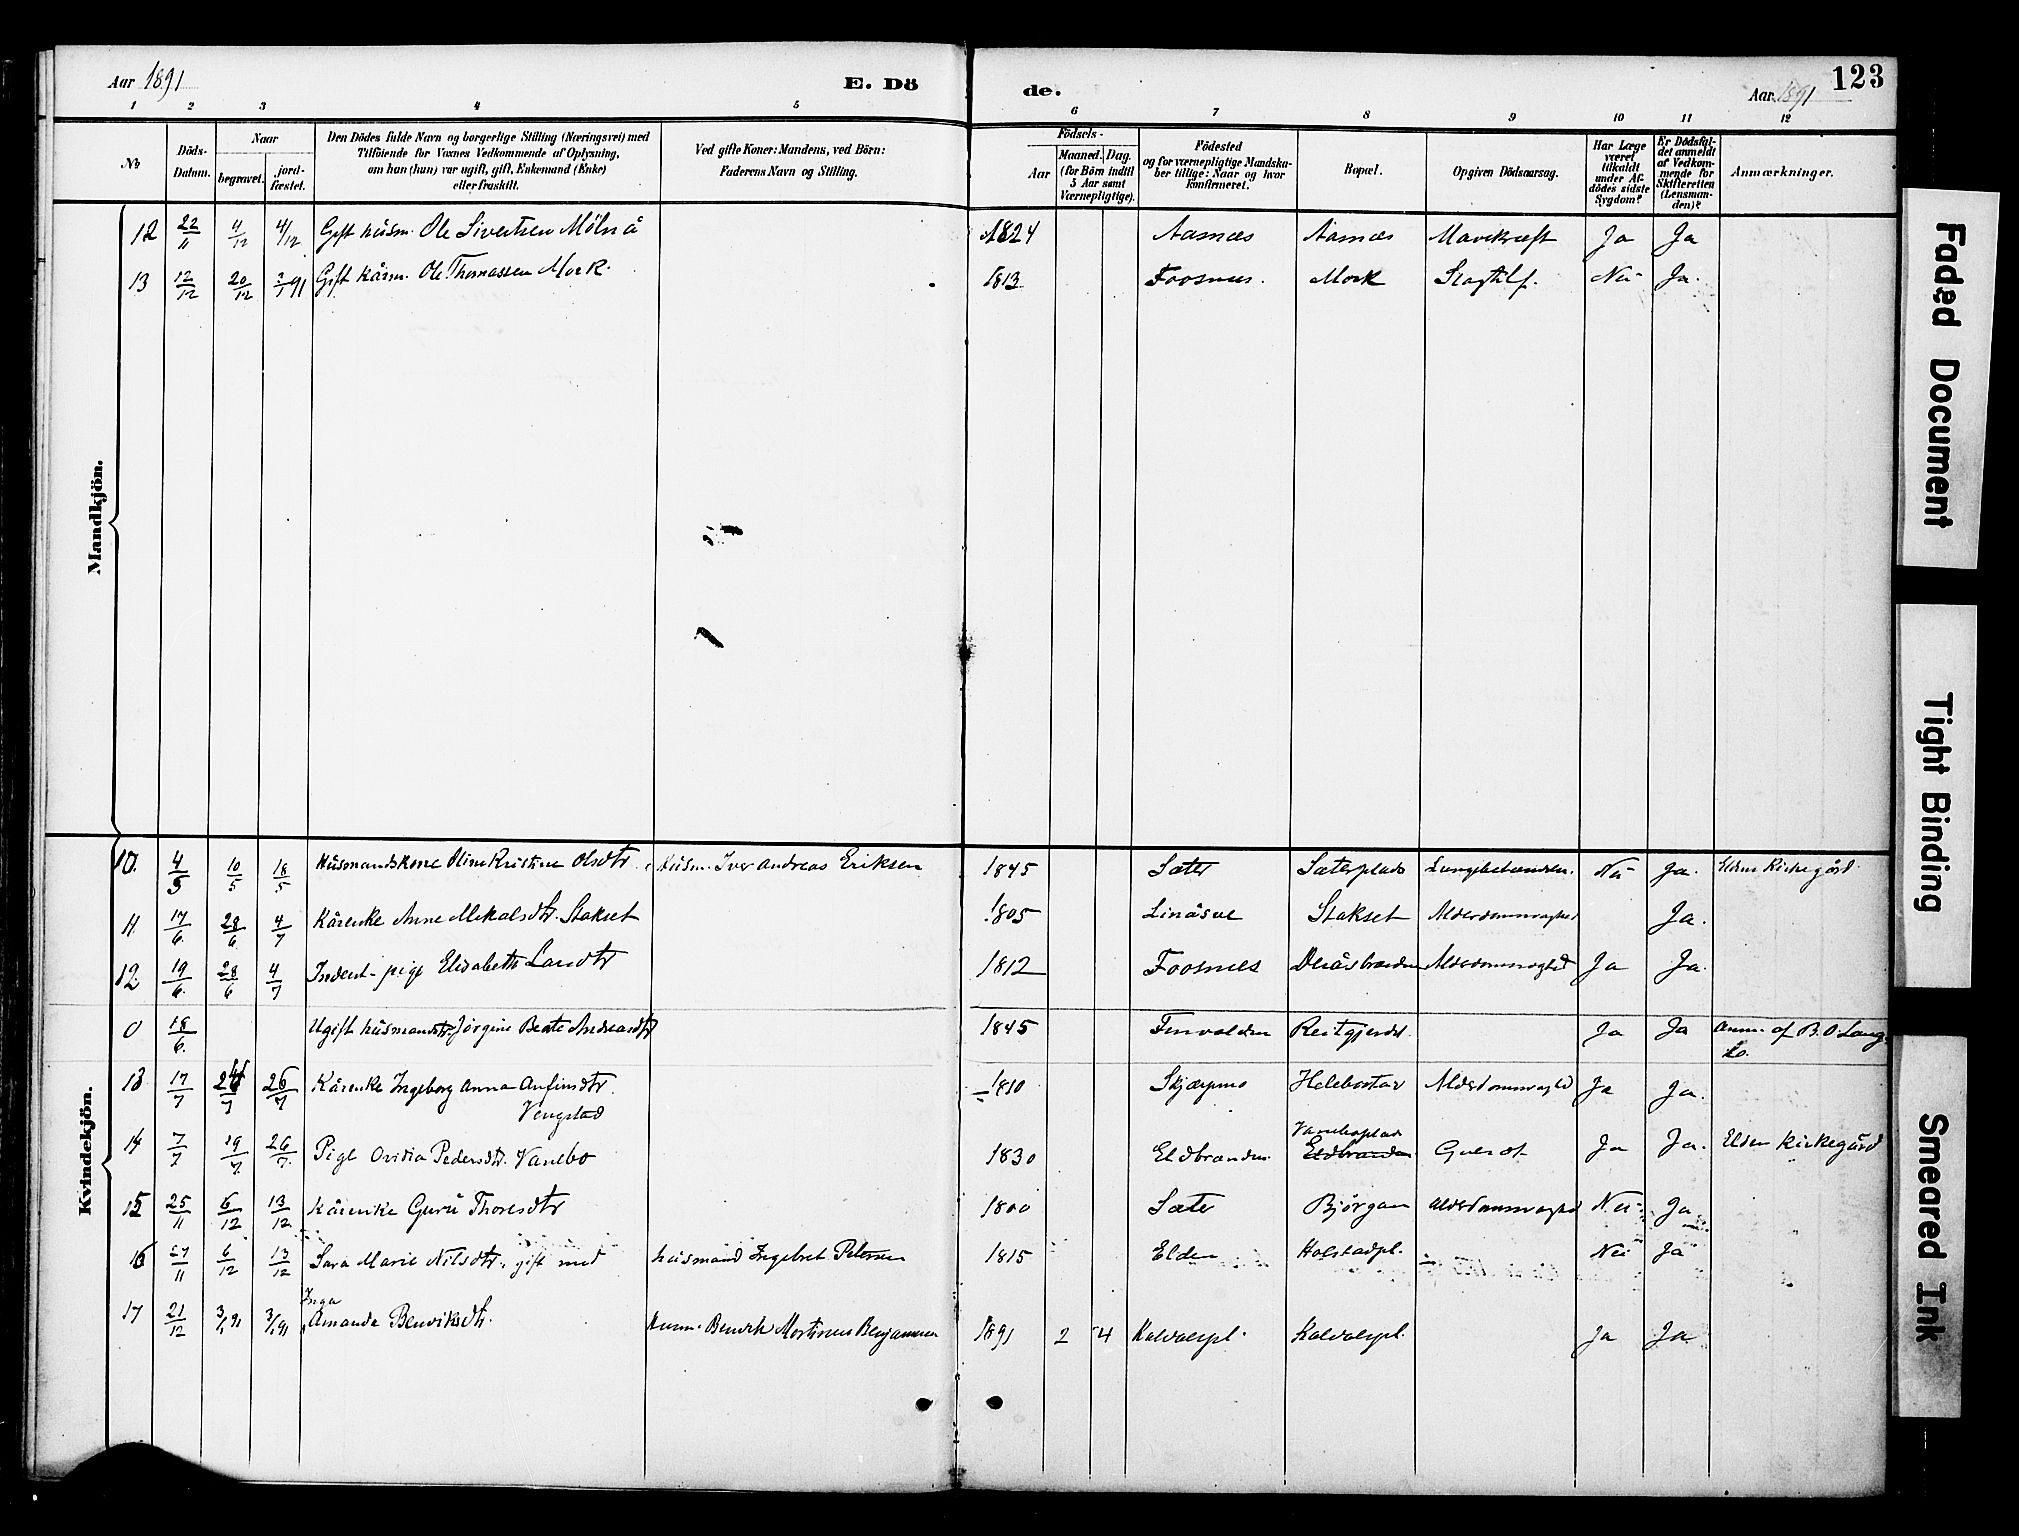 Aar 1891
E. Dö
de.
Aar 1891
123
1 2 3 4 5 6 7 8 9 10 11 12
No
Döds-Datum.
Naar
begravet.
jord-fæstet.
Den Dödes fulde Navn og borgerlige Stilling (Næringsvei) med
Tilföiende for Voxnes Vedkommende af Oplysning,
om han (hun) var ugift, gift, Enkemand (Enke)
eller fraskilt.
Ved gifte Koner: Mandens, ved Börn:
Faderens Navn og Stilling.
Födsels-
Aar
Maaned. Dag.
(for Börn indtil
5 Aar samt
Værnepligtige).
Födested
og for værnepligtige Mandska-
ber tillige: Naar og hvor
konfirmeret.
Bopæl.
Opgiven Dödsaarsag.
Har Læge
været
tilkaldt
under Af-
dödes sidste
Sygdom?
Er Dödsfal-
det anmeldt
af Vedkom-
mende for
Skifteretten
(Lensman-
den)?
Anmærkninger.
Mandkjön.
12 22/11 4/12 4/12 Gift husm. Ole Sivertsen Mölnå 1824 Aasnæs Aasnæs Mavekræft Ja Ja
13 12/12 20/12 2/1 91 Gift kårm. Ole Thomassen Mork. 1813 Foosnæs. Mork Slagtilf. Nei Ja.
Kvindekjön.
10. 4/5 10/5 18/5 Husmandskone Oline Kristine Olsdtr. Husm. Iver Andreas Eriksen 1845 Sæter Sæterplads Lungebetændelse. Nei Ja. Elden Kirkegård
11. 17/6 28/6 4/7 Kårenke Anne Mikalsdtr. Stakset 1805 Stakset Alderdomssvaghed Ja.
12. 19/6 28/6 4/7 Indent-pige Elisabeth Larsdtr 1812 Foosnes Alderdomssvaghed Ja Ja.
0 18/6 Ugift husmandsdtr. Jørgine Beate Andreasdtr 1845 Ja Ja Anm. af B. O. Lang-
lo.
13 17/7 26/7 Kårenke Ingeborg Anna Anfinsdtr. 1810 Skjærpmo Alderdomssvaghed Ja Ja.
Vengstad
14 7/7 19/7 26/7 Pige Ovidia Pedersdtr. Vanebo 1830 Eldbranden Vaneboplads Eldbranden Ja Ja. Elden Kirkegård
15 25/11 6/12 13/12 Kårenke Guru Thoresdtr 1800 Sæter Bjørgan Alderdomssvaghed Nei Ja
16 27/11 6/12 13/12 Sara Marie Nilsdtr. gift med husmand Ingebret Petersen 1815 Elden Holstadpl. Nei Ja
17 21/12 3/1 91 3/1 91 Inga Amanda Benriksdtr. Husm. Benrik Martinus Benjaminsen 1891 2 4 Kaldalspl. Kaldalspl. Ja Ja
Faded Document
Tight Binding
Smeared Ink